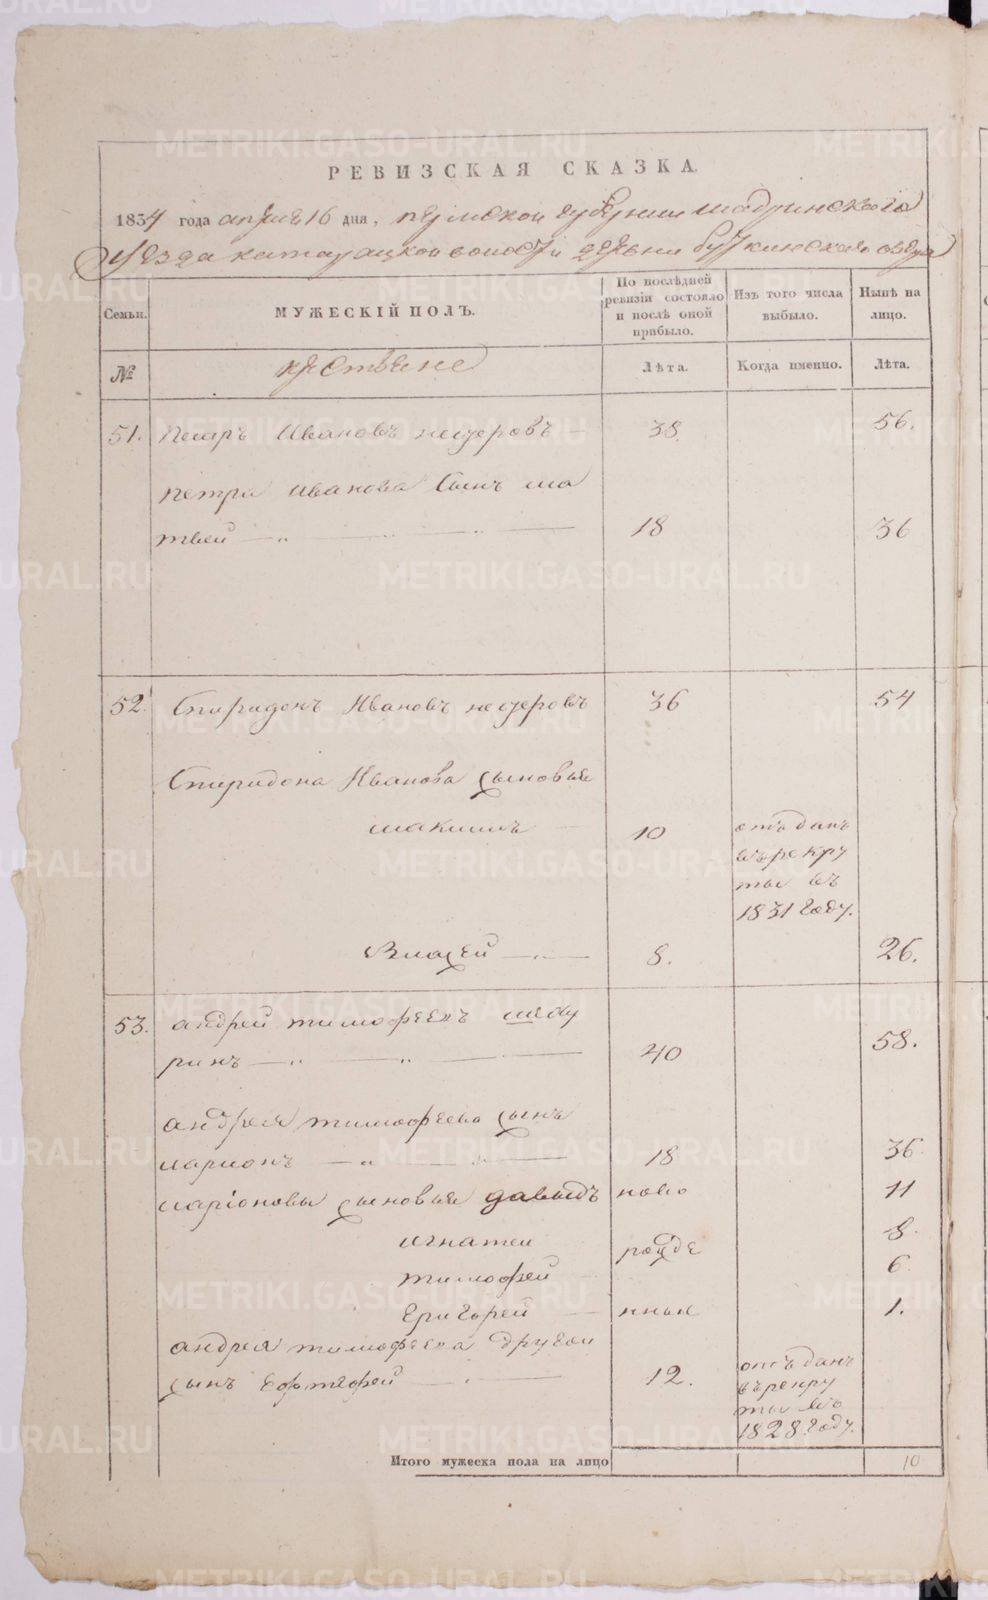 РЕВИЗСКАЯ СКАЗКА.
1834 года апреля 16 дня, пермской губернии шадринского
уезда катайцкой волости деревни буткинского озера
Семьи.
МУЖЕСКІЙ ПОЛЪ.
По послѣдней ревизіи состояло и послѣ оной прибыло.
Изъ того числа выбыло.
Нынѣ на лицо.
№
крестьяне
Лѣта.
Когда именно.
Лѣта.
51. Петръ Ивановъ 38. 56.
петра иванова сынъ ма
твей 18 36
52. Спиридонъ Ивановъ 36 54
Спиридона Иванова сыновья
максимъ 10 отъданъ
въ рекру
ты въ
1831 году.
Власей 8. 26.
53. андрей тимофеевъ шаду
ринъ 40 58.
андрея тимофеева сынъ
ларионъ 18 36
ларіоновы сыновья давыдъ ново 11
игнатей рожде 8.
тимофей 6
григорей нные 1.
андрея тимофеева другой
сынъ ефтефей 12. отъданъ
въ рекру
ты въ
1828 году.
Итого мужеска пола на лицо 10
METRIKI.GASO-URAL.RU